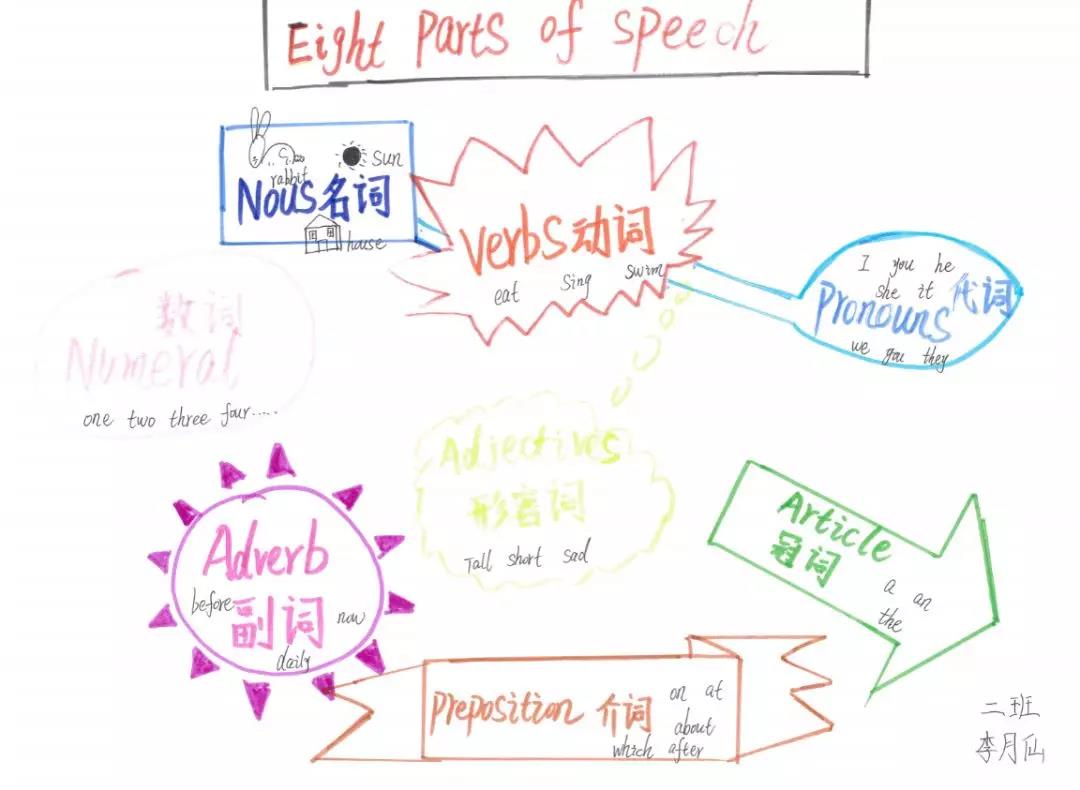 Eight parts of speech
rabbit
sun
Nous名词
house
Verbs动词
eat sing swim
I you he
she it
Pronouns 代词
we you they
数词
Numeral
one two three four.....
Adjectives
形容词
Tall short sad
Adverb
before
副词
now
daily
Article
冠词
a an
the
Preposition 介词
on at
about
which after
二班
李月仙